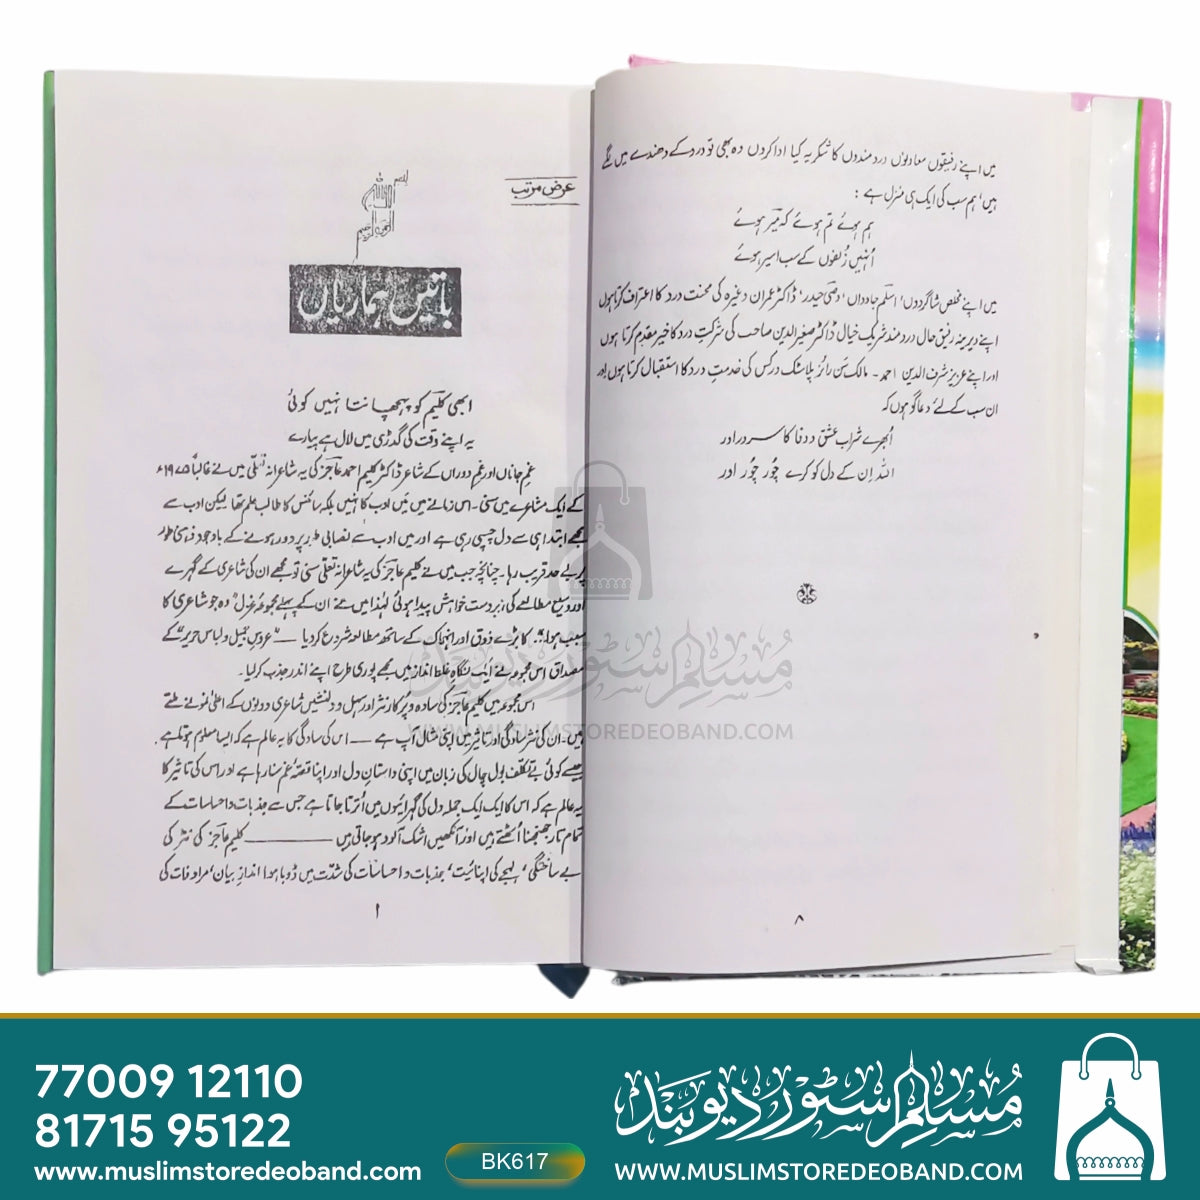 میں اپنے رفیقوں معاونوں درد مندوں کا شکریہ کیا ادا کروں وہ بھی تو درد کے دھندے میں لگے
ہیں' ہم سب کی ایک ہی منزل ہے :
ہم ہوئے تم ہوئے کہ میرؔ ہوئے
اُنہیں زُلفوں کے سب اسیر ہوئے
میں اپنے مخلص شاگردوں' اسلم جاوداں' وصی حیدر' ڈاکٹر عمران وغیرہ کی محنت درد کا اعتراف کرتا ہوں
اپنے دیرینہ رفیق حال درد مند شریک خیال ڈاکٹر صغیر الدین صاحب کی شرکتِ درد کا خیر مقدم کرتا ہوں
اور اپنے عزیز شرف الدین احمد - مالک سن رائز پلاسٹک ورکس کی خدمتِ درد کا استقبال کرتا ہوں اور
ان سب کے لئے دعا گو ہوں کہ
اُبھرے شراب عشق و وفا کا سرور اور
اللہ اِن کے دل کو کرے چُور چُور اور
۸
عرض مرتب
باتیں ہماریاں
ابھی کلیمؔ کو پہچانتا نہیں کوئی
یہ اپنے وقت کی گدڑی میں لال ہے پیارے
غمِ جاناں اور غمِ دوراں کے شاعر ڈاکٹر کلیم احمد عاجزؔ کی یہ شاعرانہ تعلّی میں نے غالباً ۱۹۷۵ء
کے ایک مشاعرے میں سنی ۔ اس زمانے میں میَں ادب کا نہیں بلکہ سائنس کا طالب علم تھا لیکن ادب سے
مجھے ابتدا ہی سے دل چسپی رہی ہے اور میں ادب سے نصابی طور پر دور ہونے کے باوجود ذہنی طور
پر بے حد قریب رہا۔ چنانچہ جب میں نے کلیم عاجزؔ کی یہ شاعرانہ تعلّی سنی تو مجھے ان کی شاعری کے گہرے
اور وسیع مطالعے کی زبردست خواہش پیدا ہوئی لہٰذا میں نے ان کے پہلے مجموعۂ غزل "وہ جو شاعری کا
سبب ہوا" کا بڑے ذوق اور انہماک کے ساتھ مطالعہ شروع کردیا — "عروس جمیل و لباس حریر" کے
مصداق اس مجموعے نے ایک نگاہِ غلط انداز میں مجھے پوری طرح اپنے اندر جذب کرلیا۔
اس مجموعہ میں کلیم عاجزؔ کی سادہ و پُرکار نثر اور سہل و دلنشیں شاعری دونوں کے اعلیٰ نمونے ملتے
ہیں۔ ان کی نثر سادگی اور تاثیر میں اپنی مثال آپ ہے — اس کی سادگی کا یہ عالم ہے کہ ایسا معلوم ہوتا ہے
جیسے کوئی بے تکلف بول چال کی زبان میں اپنی داستانِ دل اور اپنا قصّۂ غم سنا رہا ہے اور اس کی تاثیر کا
یہ عالم ہے کہ اس کا ایک ایک جملہ دل کی گہرائیوں میں اُترتا جاتا ہے جس سے جذبات و احساسات کے
تمام تار جھنجھنا اُٹھتے ہیں اور آنکھیں اشک آلود ہو جاتی ہیں —— کلیم عاجزؔ کی نثر کی
بے ساختگی' لہجے کی اپنائیت' جذبات و احساسات کی شدّت میں ڈوبا ہوا اندازِ بیان' مرادفات کی
۱
مسلم سٹور دیوبند
WWW.MUSLIMSTOREDEOBAND.COM
77009 12110
81715 95122
www.muslimstoredeoband.com
BK617
مسلم سٹور دیوبند
WWW.MUSLIMSTOREDEOBAND.COM